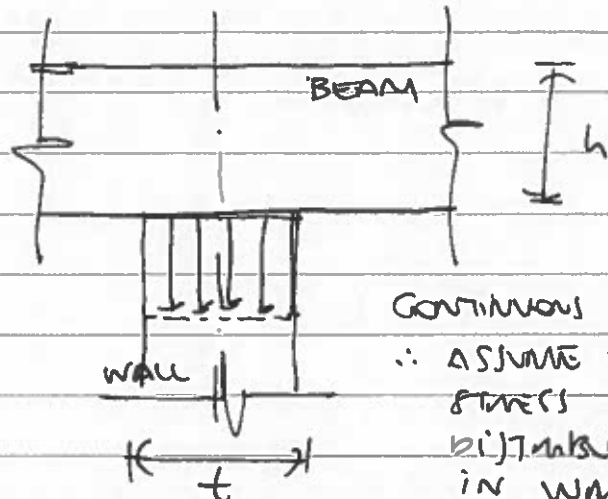 BEAM
h
CONTINUOUS
∴ ASSUME
STRESS
DISTRIBU
IN WA
WALL
t